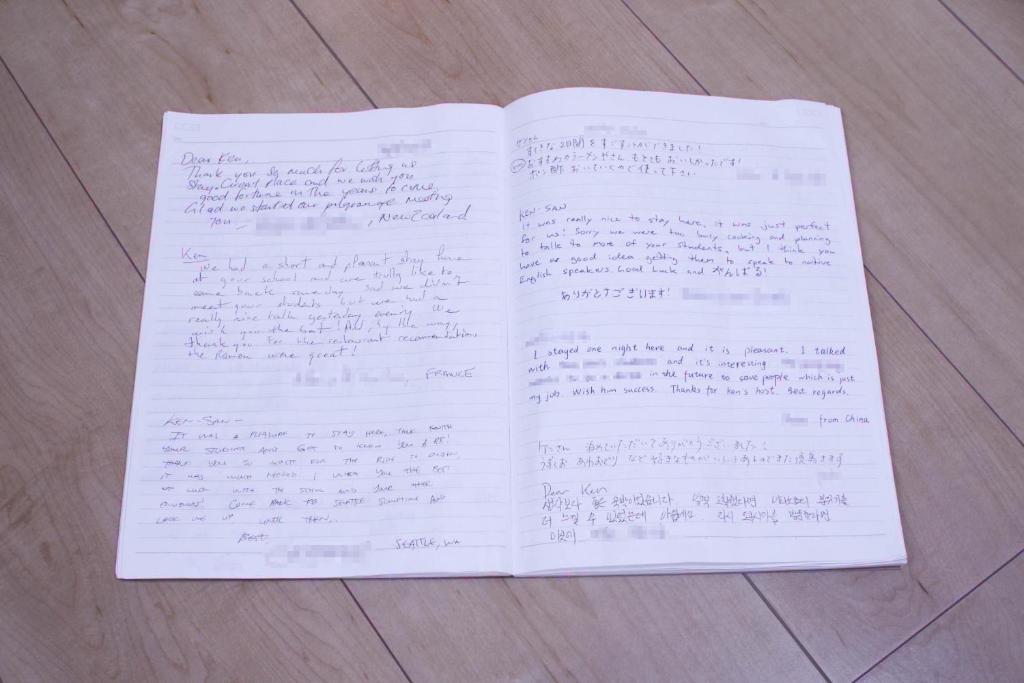 Dear Ken,
Thank you so much for letting us
stay. Great place and we wish you
good fortune in the years to come
Glad we started our programme meeting
you –
, New Zealand
Ken
We had a short and pleasant stay here
at your school and we trully like to
come back someday. Sad we didn't
meet your students but we had a
really nice talk yesterday evening. We
wish you the best! And, by the way,
thank you for the restaurant recomendation,
the Ramen were great!
, FRANCE
KEN-SAN –
IT WAS A PLEASURE TO STAY HERE, TALK WITH
YOUR STUDENTS AND GET TO KNOW YOU A BIT!
THANK YOU SO MUCH FOR THE RIDE TO
IT WAS MUCH NEEDED. I WISH YOU THE BEST
OF LUCK WITH THE SCHOOL AND YOUR
COME BACK TO SEATTLE SOMETIME AND
LOOK ME UP
BEST,
SEATTLE, WA
ケンさん
すてきな2日間をすごすことができました!
おすすめのラーメンやさん とても おいしかったです!
ポン酢 おいていくので使って下さい
KEN-SAN
It was really nice to stay here, it was just perfect
for us! Sorry we were too busy cooking and planning
to talk to more of your students, but I think you
have a good idea getting them to speak to native
English speakers. Good luck and がんばる!
ありがとうございます!
I stayed one night here and it is pleasant. I talked
with and it's interesting
in the future to save people which is just
my job. Wish him success. Thanks for Ken's host. Best regards.
from China
ケンさん 泊めていただいてありがとうございました!
うずしお あわおどり など好きなものがいっぱいあるのでまた
Dear Ken
생각보다
더 느낄 수 있었는데 아쉽네요. 다시